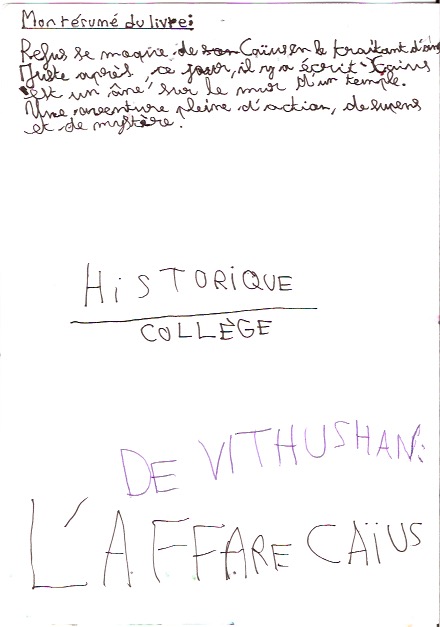 Mon résumé du livre:
Refus se moque de son Caïus en le traitant d'âne
Juste après, ce jour, il y a écrit "Caius
est un âne" sur le mur d'un temple.
Une aventure pleine d'action, de supens
et de mystère.
HiSTORiQUE
COLLÈGE
DE VITHUSHAN:
L'AFFARE CAÏUS